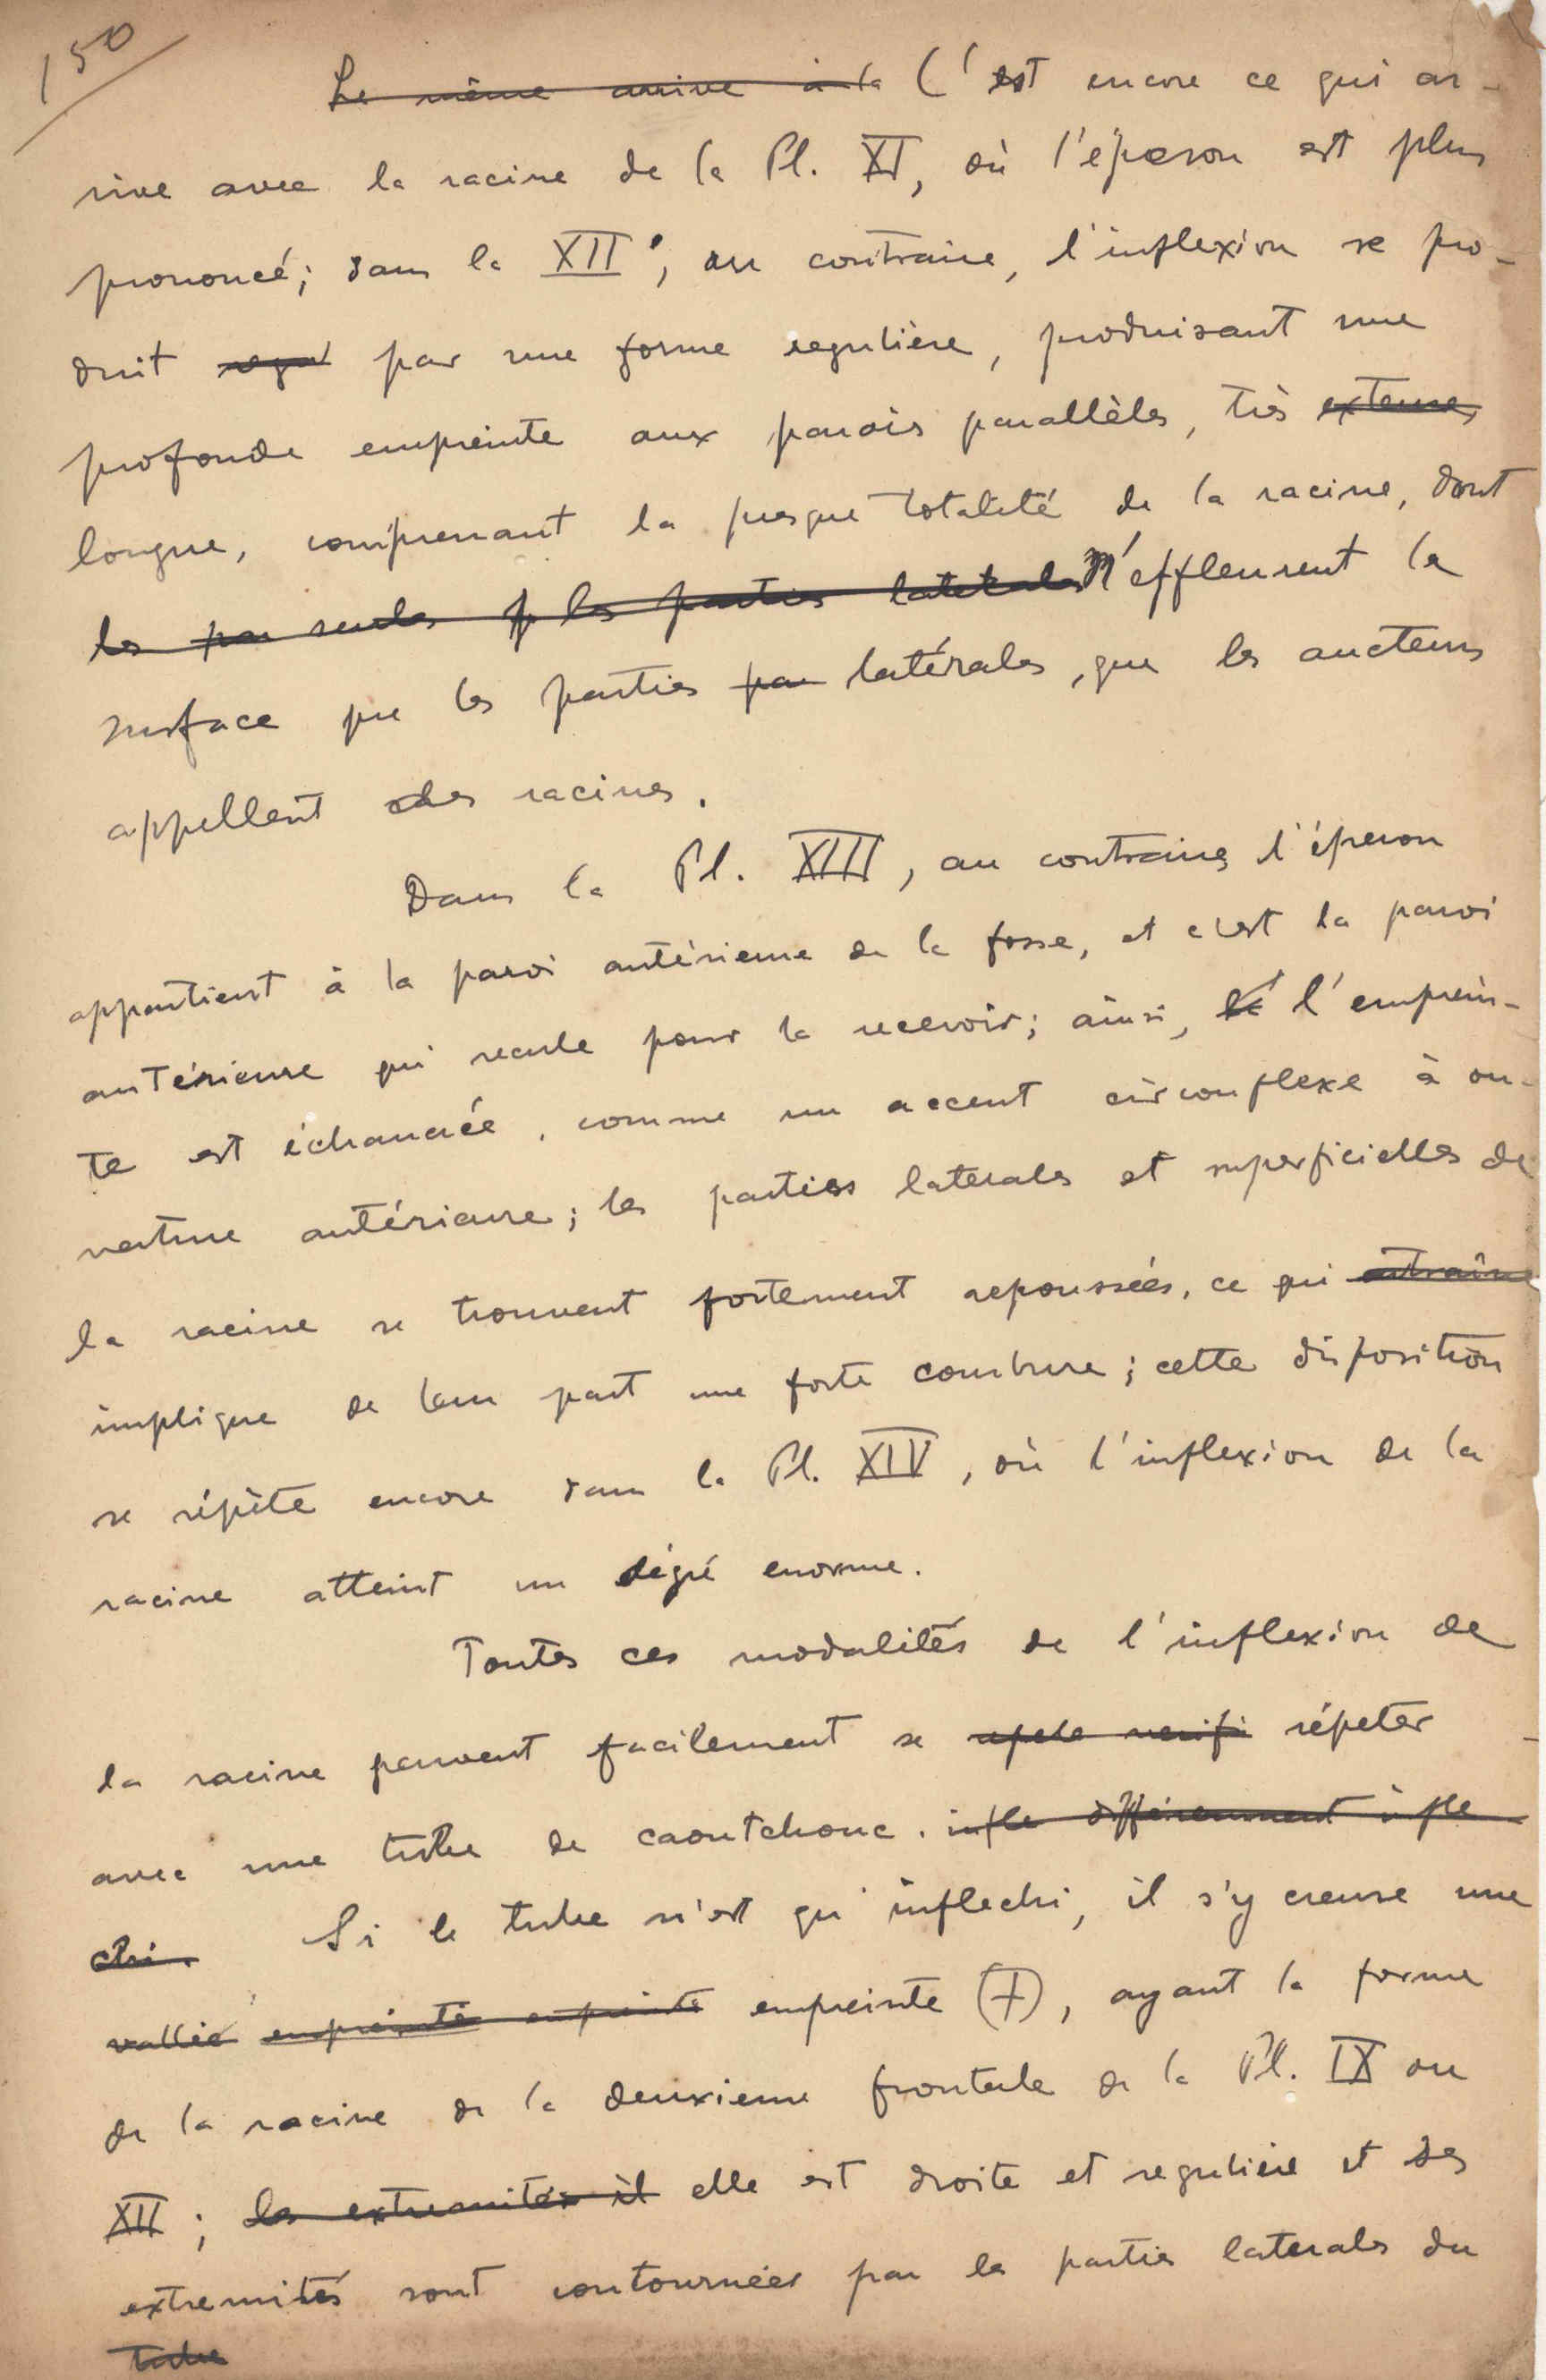 150
Le même arrive à la C'est encore ce qui ar-
rive avec la racine de la Pl. XI, où l'éperon est plus
prononcé; dans la XII, au contraire, l'inflexion se pro-
duit regul par une forme regulière, produisant une
profonde empreinte aux parois parallèles, très externes
longue, comprenant la presque totalité de la racine, dont
les par seules p les parties laterales n'effleurent la
surface que les parties par latérales, que les aucteurs
appellent des racines.
Dans la Pl. XIII, au contraire, l'éperon
appartient à la paroi antérieure de la fosse, et c'est la paroi
antérieure qui recule pour la recevoir; ainsi, l'emprein-
te est échancrée, comme un accent circonflexe à ou-
verture antérieure; les parties laterales et superficielles de
la racine se trouvent fortement repoussées, ce qui entraîne
implique de leur part une forte courbure; cette disposition
se répète encore dans la Pl. XIV, où l'inflexion de la
racine atteint un dégré enorme.
Toutes ces modalités de l'inflexion de
la racine peuvent facilement se repete verifi répeter
avec une tube de caoutchouc. infle différemment infle
chi. Si le tube n'est qu'inflechi, il s'y creuse une
vallée empreinte empreinte empreinte (+), ayant la forme
de la racine de la deuxieme frontale de la Pl. IX ou
XII; les extremités il elle est droite et reguliere et ses
extremités sont contournées par les parties laterales du
tube